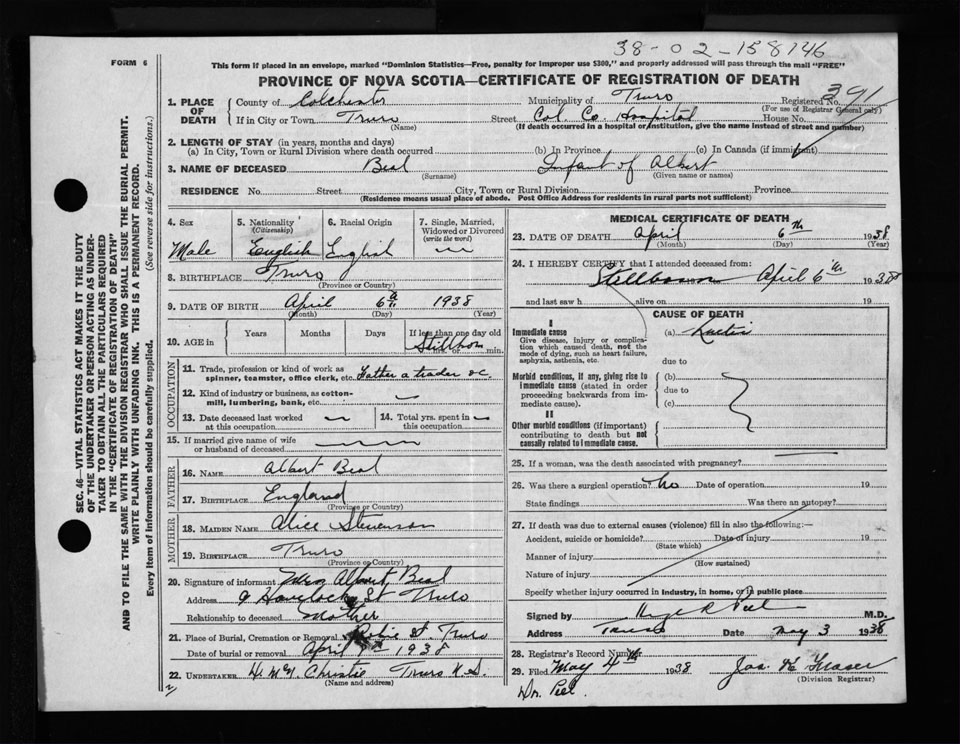 38-02-158746
FORM 6
This form if placed in an envelope, marked "Dominion Statistics—Free, penalty for improper use $300," and properly addressed will pass through the mail "FREE"
PROVINCE OF NOVA SCOTIA—CERTIFICATE OF REGISTRATION OF DEATH
391
1. PLACE OF DEATH
County of Colchester Municipality of Truro Registered No.
(For use of Registrar General only)
If in City or Town Truro Street Col. Co. Hospital House No.
(Name) (If death occurred in a hospital or institution, give the name instead of street and number)
2. LENGTH OF STAY (in years, months and days)
(a) In City, Town or Rural Division where death occurred (b) In Province (c) In Canada (if immigrant)
3. NAME OF DECEASED Beal Infant of Albert
(Surname) (Given name or names)
RESIDENCE No. Street City, Town or Rural Division Province
(Residence means usual place of abode. Post Office Address for residents in rural parts not sufficient)
4. Sex Male
5. Nationality (Citizenship) English
6. Racial Origin English
7. Single, Married, Widowed or Divorced (write the word)
8. BIRTHPLACE Truro
(Province or Country)
9. DATE OF BIRTH April 6th 1938
(Month) (Day) (Year)
10. AGE in Years Months Days If less than one day old
Stillborn min.
OCCUPATION
11. Trade, profession or kind of work as
spinner, teamster, office clerk, etc. Father a trader
12. Kind of industry or business, as cotton-
mill, lumbering, bank, etc.
13. Date deceased last worked at this occupation
14. Total yrs. spent in this occupation
15. If married give name of wife
or husband of deceased
FATHER
16. NAME Albert Beal
17. BIRTHPLACE England
(Province or Country)
MOTHER
18. MAIDEN NAME Alice Stevenson
19. BIRTHPLACE Truro
(Province or Country)
20. Signature of informant Albert Beal
Address 9 Havelock St Truro
Relationship to deceased Mother
21. Place of Burial, Cremation or Removal Robie St. Truro
Date of burial or removal April 7th 1938
22. UNDERTAKER Christie Truro N.S.
(Name and address)
MEDICAL CERTIFICATE OF DEATH
23. DATE OF DEATH April 6th 1938
(Month) (Day) (Year)
24. I HEREBY CERTIFY that I attended deceased from:
Stillborn April 6th 1938
and last saw h alive on 19
CAUSE OF DEATH
I
Immediate cause (a)
Give disease, injury or complica-
tion which caused death, not the
mode of dying, such as heart failure,
asphyxia, asthenia, etc.
due to
Morbid conditions, if any, giving rise to
immediate cause (stated in order
proceeding backwards from im-
mediate cause).
(b)
due to
(c)
II
Other morbid conditions (if important)
contributing to death but not
causally related to immediate cause.
25. If a woman, was the death associated with pregnancy?
26. Was there a surgical operation? no Date of operation 19
State findings Was there an autopsy?
27. If death was due to external causes (violence) fill in also the following:—
Accident, suicide or homicide? Date of injury 19
(State which)
Manner of injury
(How sustained)
Nature of injury
Specify whether injury occurred in Industry, in home, or in public place
Signed by Peel M.D.
Address Truro Date May 3 1938
28. Registrar's Record Number
29. Filed May 4th 1938 Jas. Fraser
(Division Registrar)
Dr. Peel
SEC. 46—VITAL STATISTICS ACT MAKES IT THE DUTY
OF THE UNDERTAKER OR PERSON ACTING AS UNDER-
TAKER TO OBTAIN ALL THE PARTICULARS REQUIRED
IN THE "CERTIFICATE OF REGISTRATION OF DEATH"
AND TO FILE THE SAME WITH THE DIVISION REGISTRAR WHO SHALL ISSUE THE BURIAL PERMIT.
WRITE PLAINLY WITH UNFADING INK. THIS IS A PERMANENT RECORD.
Every item of information should be carefully supplied. (See reverse side for instructions.)